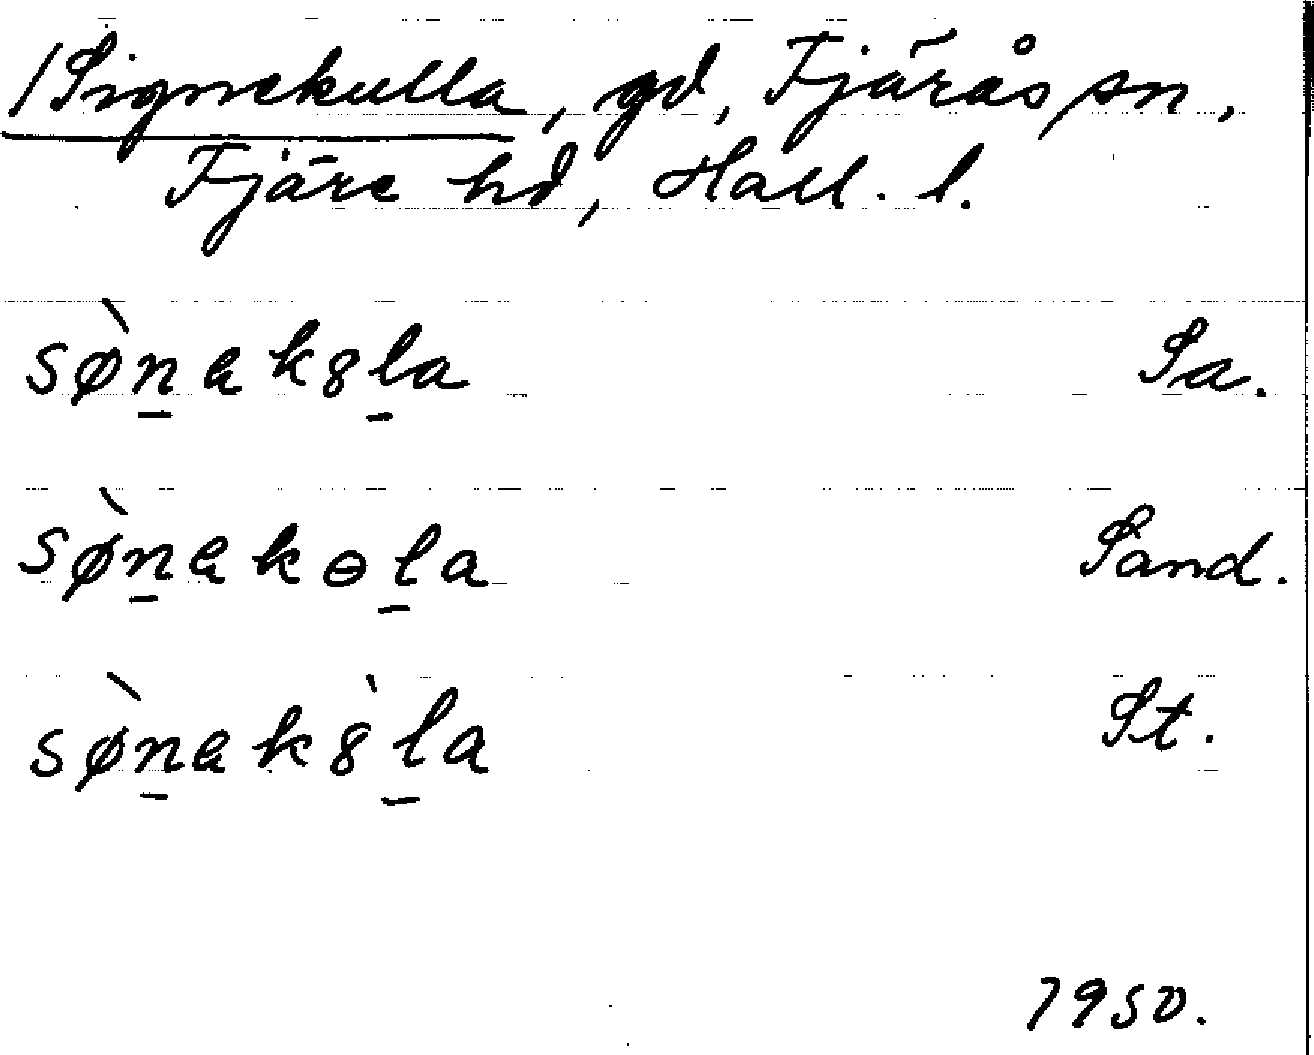 /Signekulla, gd, Fjärås sn,
Fjäre hd, Hall. l.
sø̀n̲ak8l̲a Sa.
sø̀n̲akɵl̲a Sand.
sø̀n̲ak8̀l̲a St.
1950.